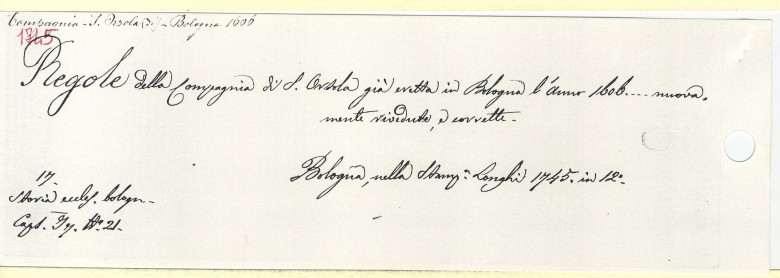 Compagnia - S. Orsola (di) - Bologna 1606
1745
Regole della Compagnia di S. Orsola già eretta in Bologna l'anno 1606.... nuova-
mente rivedute, e corrette.
Bologna, nella Stamp.a Longhi 1745. in 12.o
17.
Storia eccles. bologn.
Caps. Ty. No. 21.